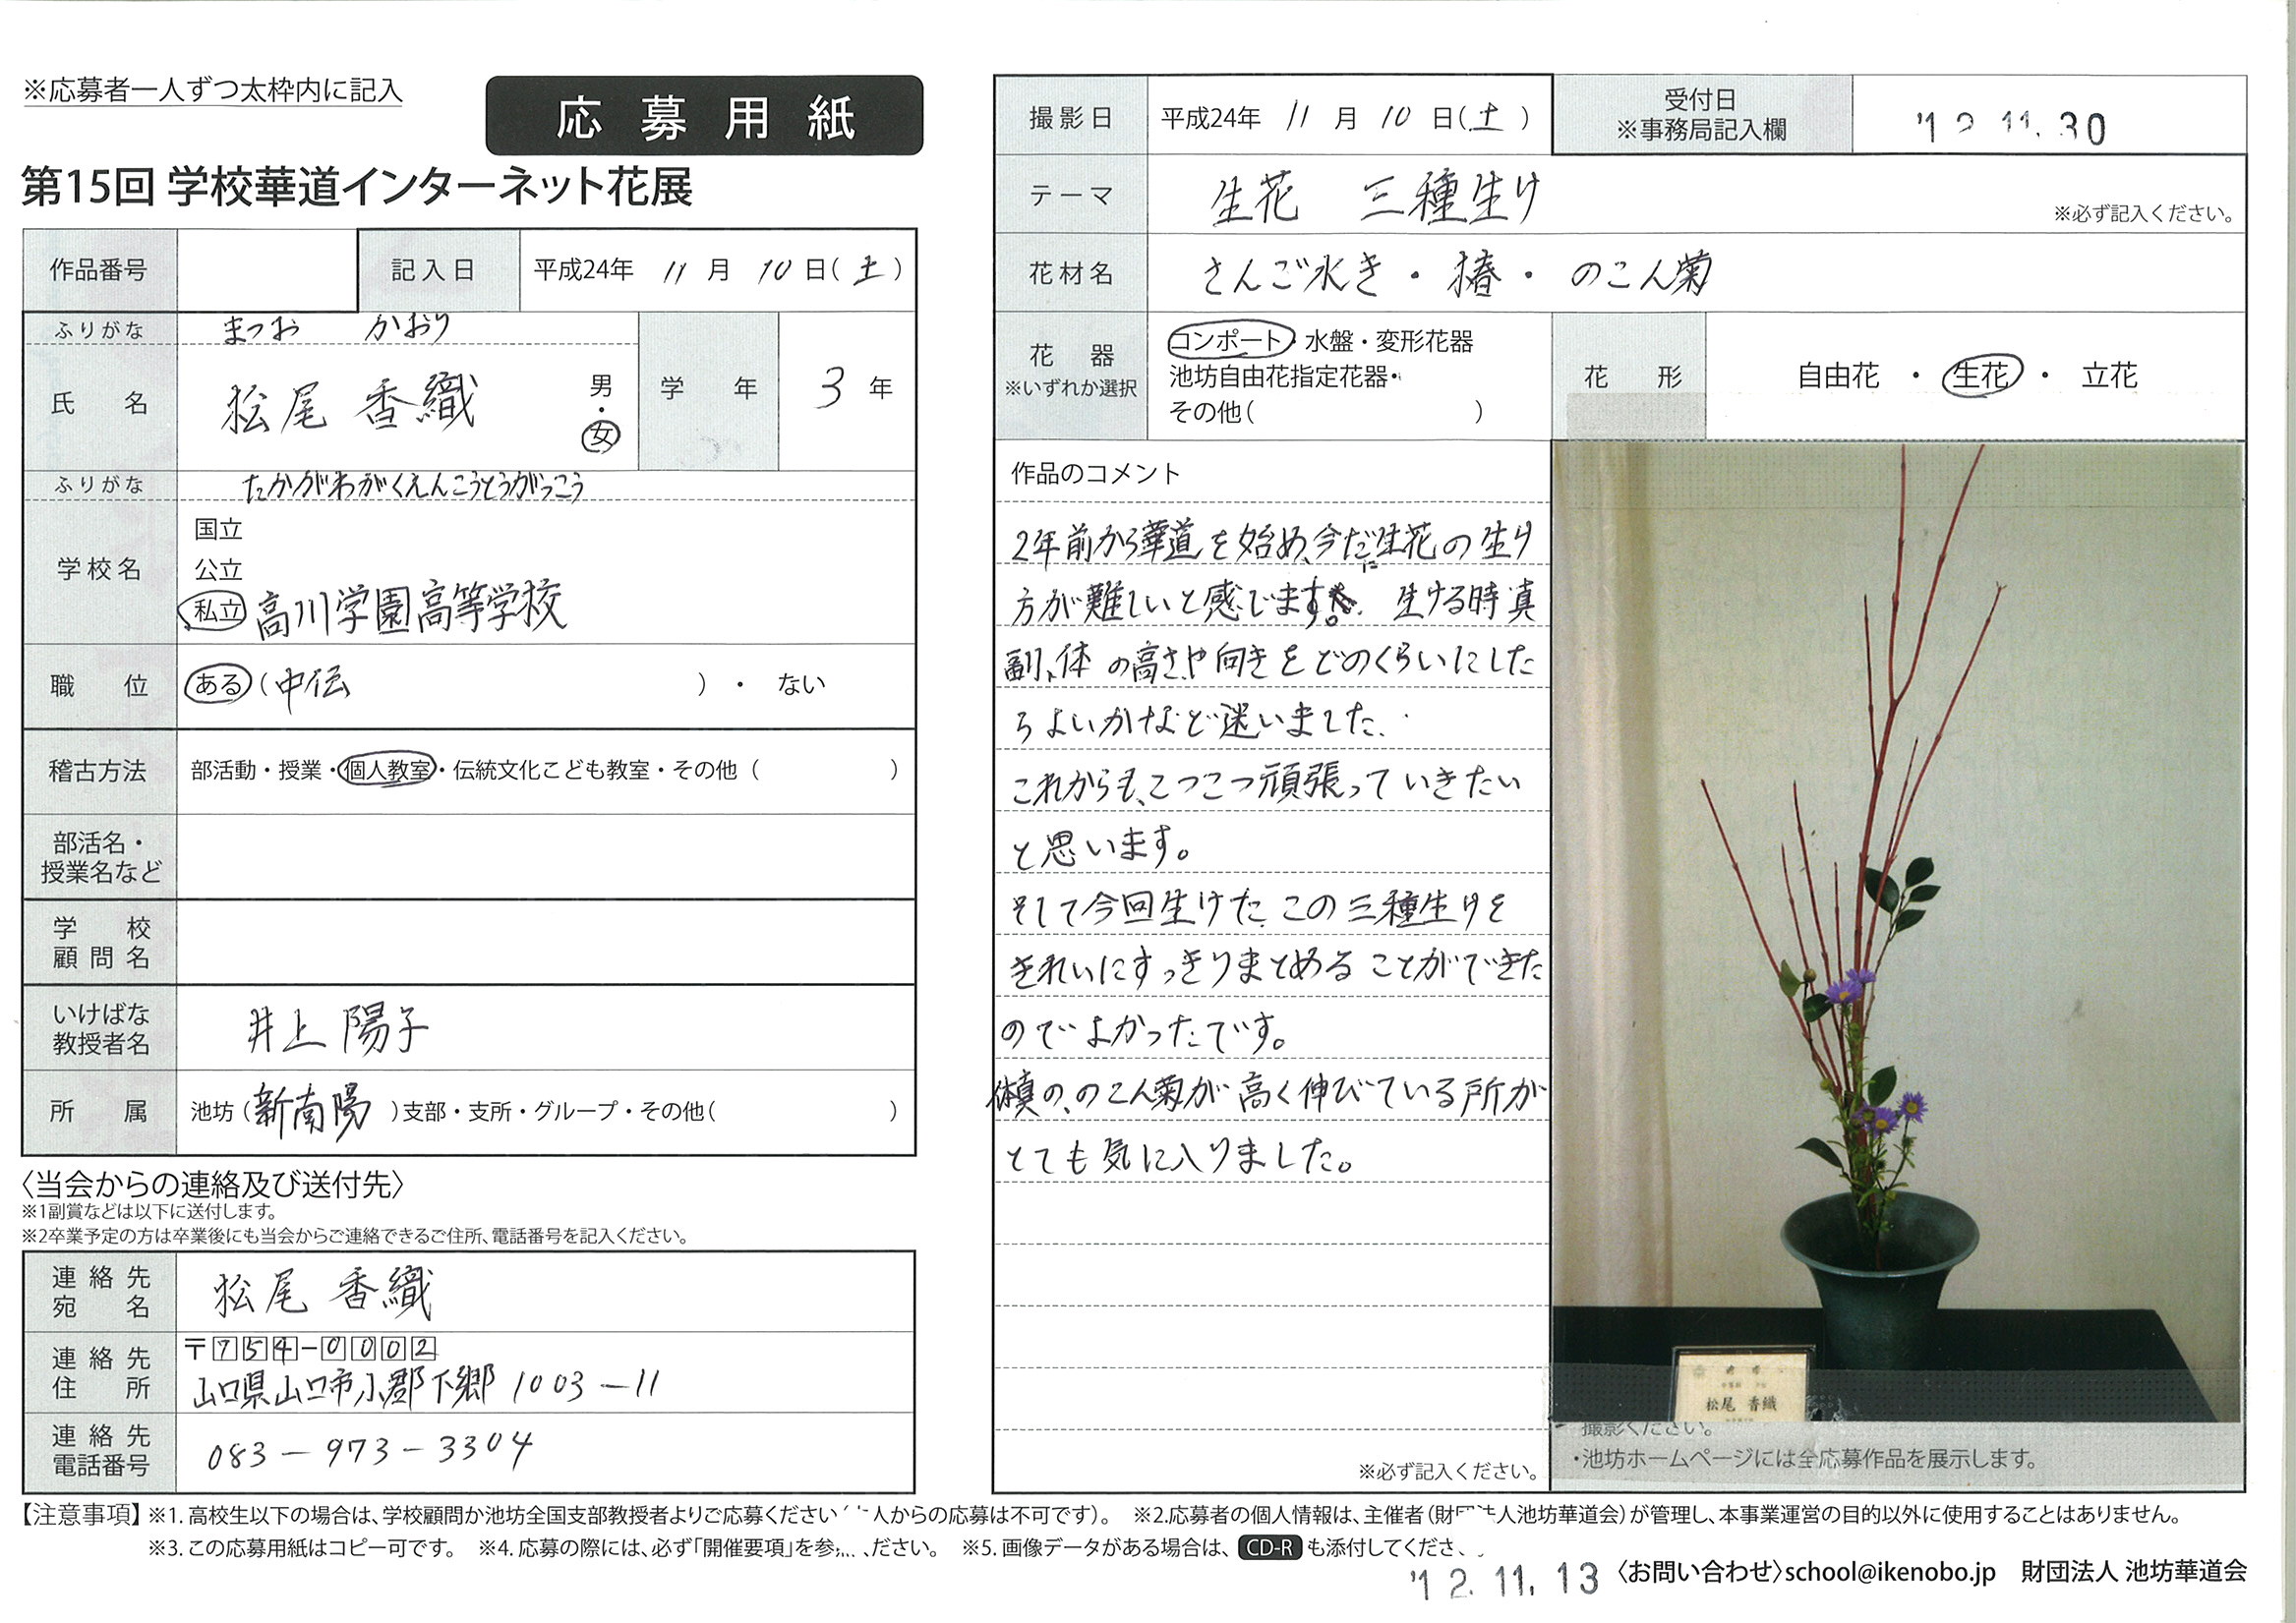 ※応募者一人ずつ太枠内に記入
応募用紙
第15回 学校華道インターネット花展
作品番号
記入日 平成24年 11月 10日(土)
ふりがな まつお かおり
氏名 松尾 香織 男・女
学年 3年
ふりがな たかがわがくえんこうとうがっこう
学校名
国立
公立
私立 高川学園高等学校
職位 ある(中伝)・ない
稽古方法 部活動・授業・個人教室・伝統文化こども教室・その他( )
部活名・
授業名など
学校
顧問名
いけばな
教授者名 井上 陽子
所属 池坊(新南陽)支部・支所・グループ・その他( )
〈当会からの連絡及び送付先〉
※1副賞などは以下に送付します。
※2卒業予定の方は卒業後にも当会からご連絡できるご住所、電話番号を記入ください。
連絡先
宛名 松尾 香織
〒754-0002
連絡先
住所 山口県山口市小郡下郷 1003-11
連絡先
電話番号 083-973-3304
撮影日 平成24年 11月 10日(土)
受付日
※事務局記入欄
'12 11.30
テーマ 生花 三種生け
※必ず記入ください。
花材名 さんご水き・椿・のこん菊
花器
※いずれか選択
コンポート・水盤・変形花器
池坊自由花指定花器・
その他( )
花形 自由花・生花・立花
作品のコメント
2年前から華道を始め、今だに生花の生け
方が難しいと感じます。生ける時真
副、体の高さや向きをどのくらいにした
らよいかなど迷いました.
これからも、こつこつ頑張っていきたい
と思います。
そして今回生けたこの三種生けを
きれいにすっきりまとめることができた
のでよかったです。
体真の、のこん菊が高く伸びている所が
とても気に入りました。
※必ず記入ください。
松尾 香織
撮影ください。
・池坊ホームページには全応募作品を展示します。
【注意事項】※1. 高校生以下の場合は、学校顧問か池坊全国支部教授者よりご応募ください 人からの応募は不可です)。 ※2.応募者の個人情報は、主催者(財団法人池坊華道会)が管理し、本事業運営の目的以外に使用することはありません。
※3. この応募用紙はコピー可です。 ※4. 応募の際には、必ず「開催要項」を参 ください。 ※5. 画像データがある場合は、CD-Rも添付してくださ
'12.11.13
〈お問い合わせ〉school@ikenobo.jp 財団法人 池坊華道会